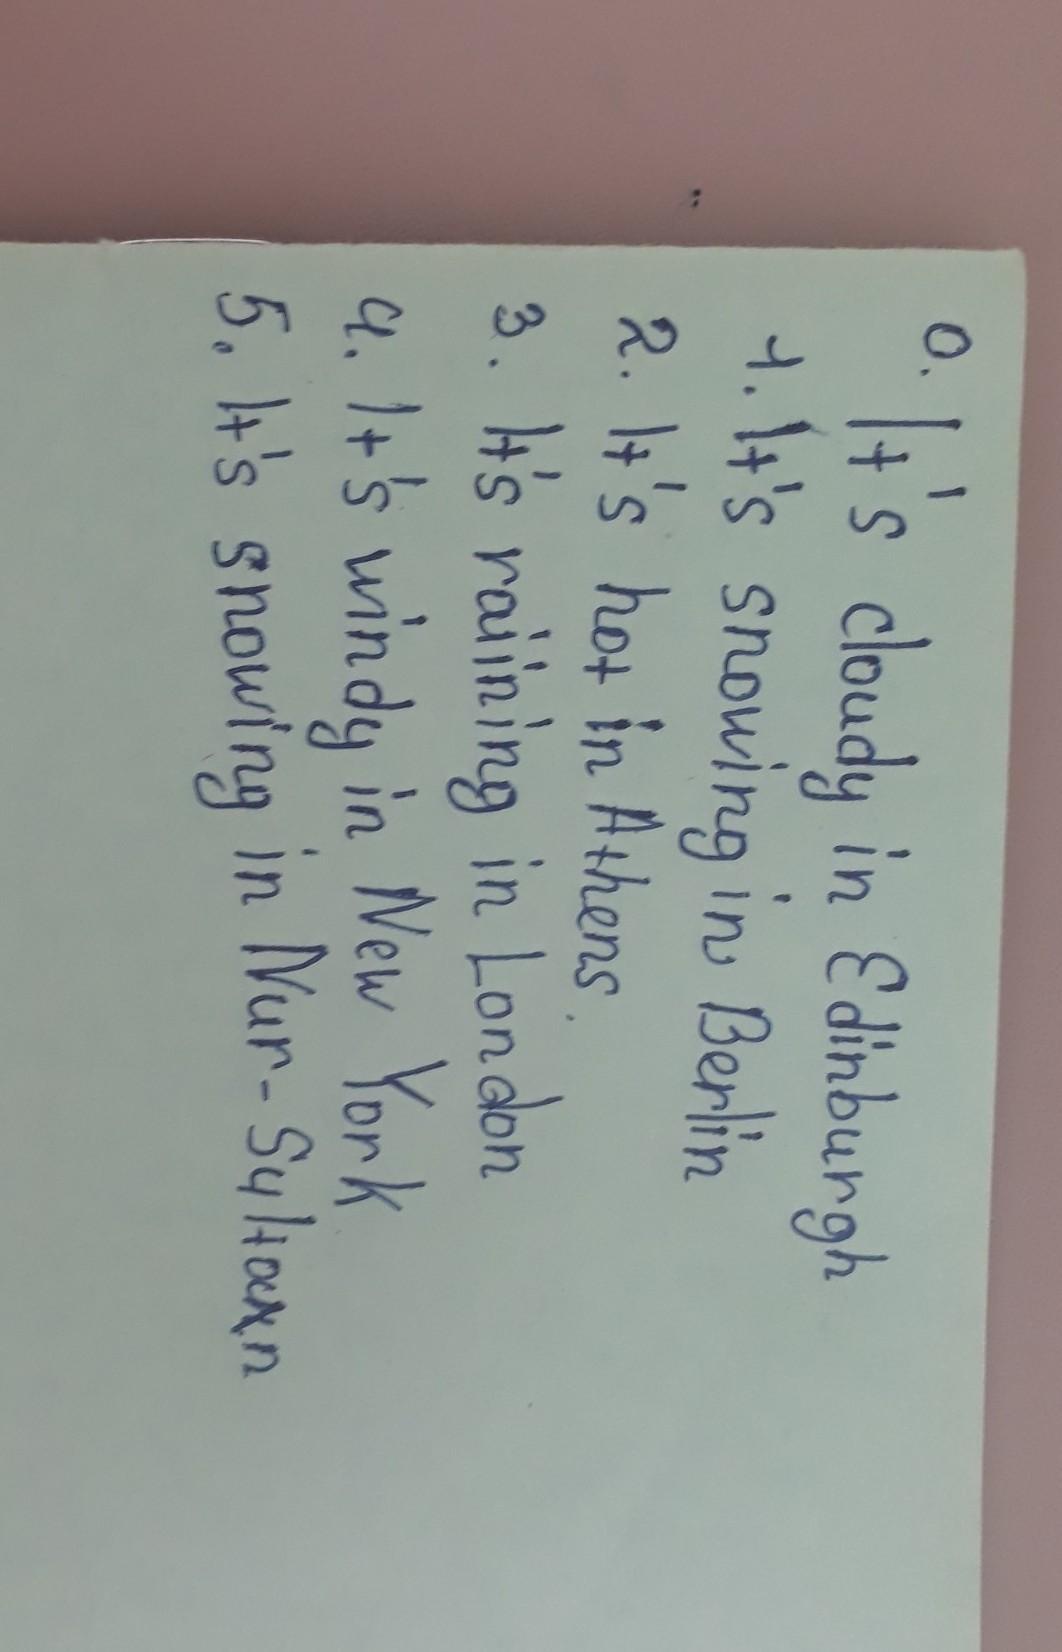 0. It's cloudy in Edinburgh
1. It's snowing in Berlin
2. It's hot in Athens.
3. It's raiining in London
4. It's windy in New York
5. It's snowing in Nur-Sultan